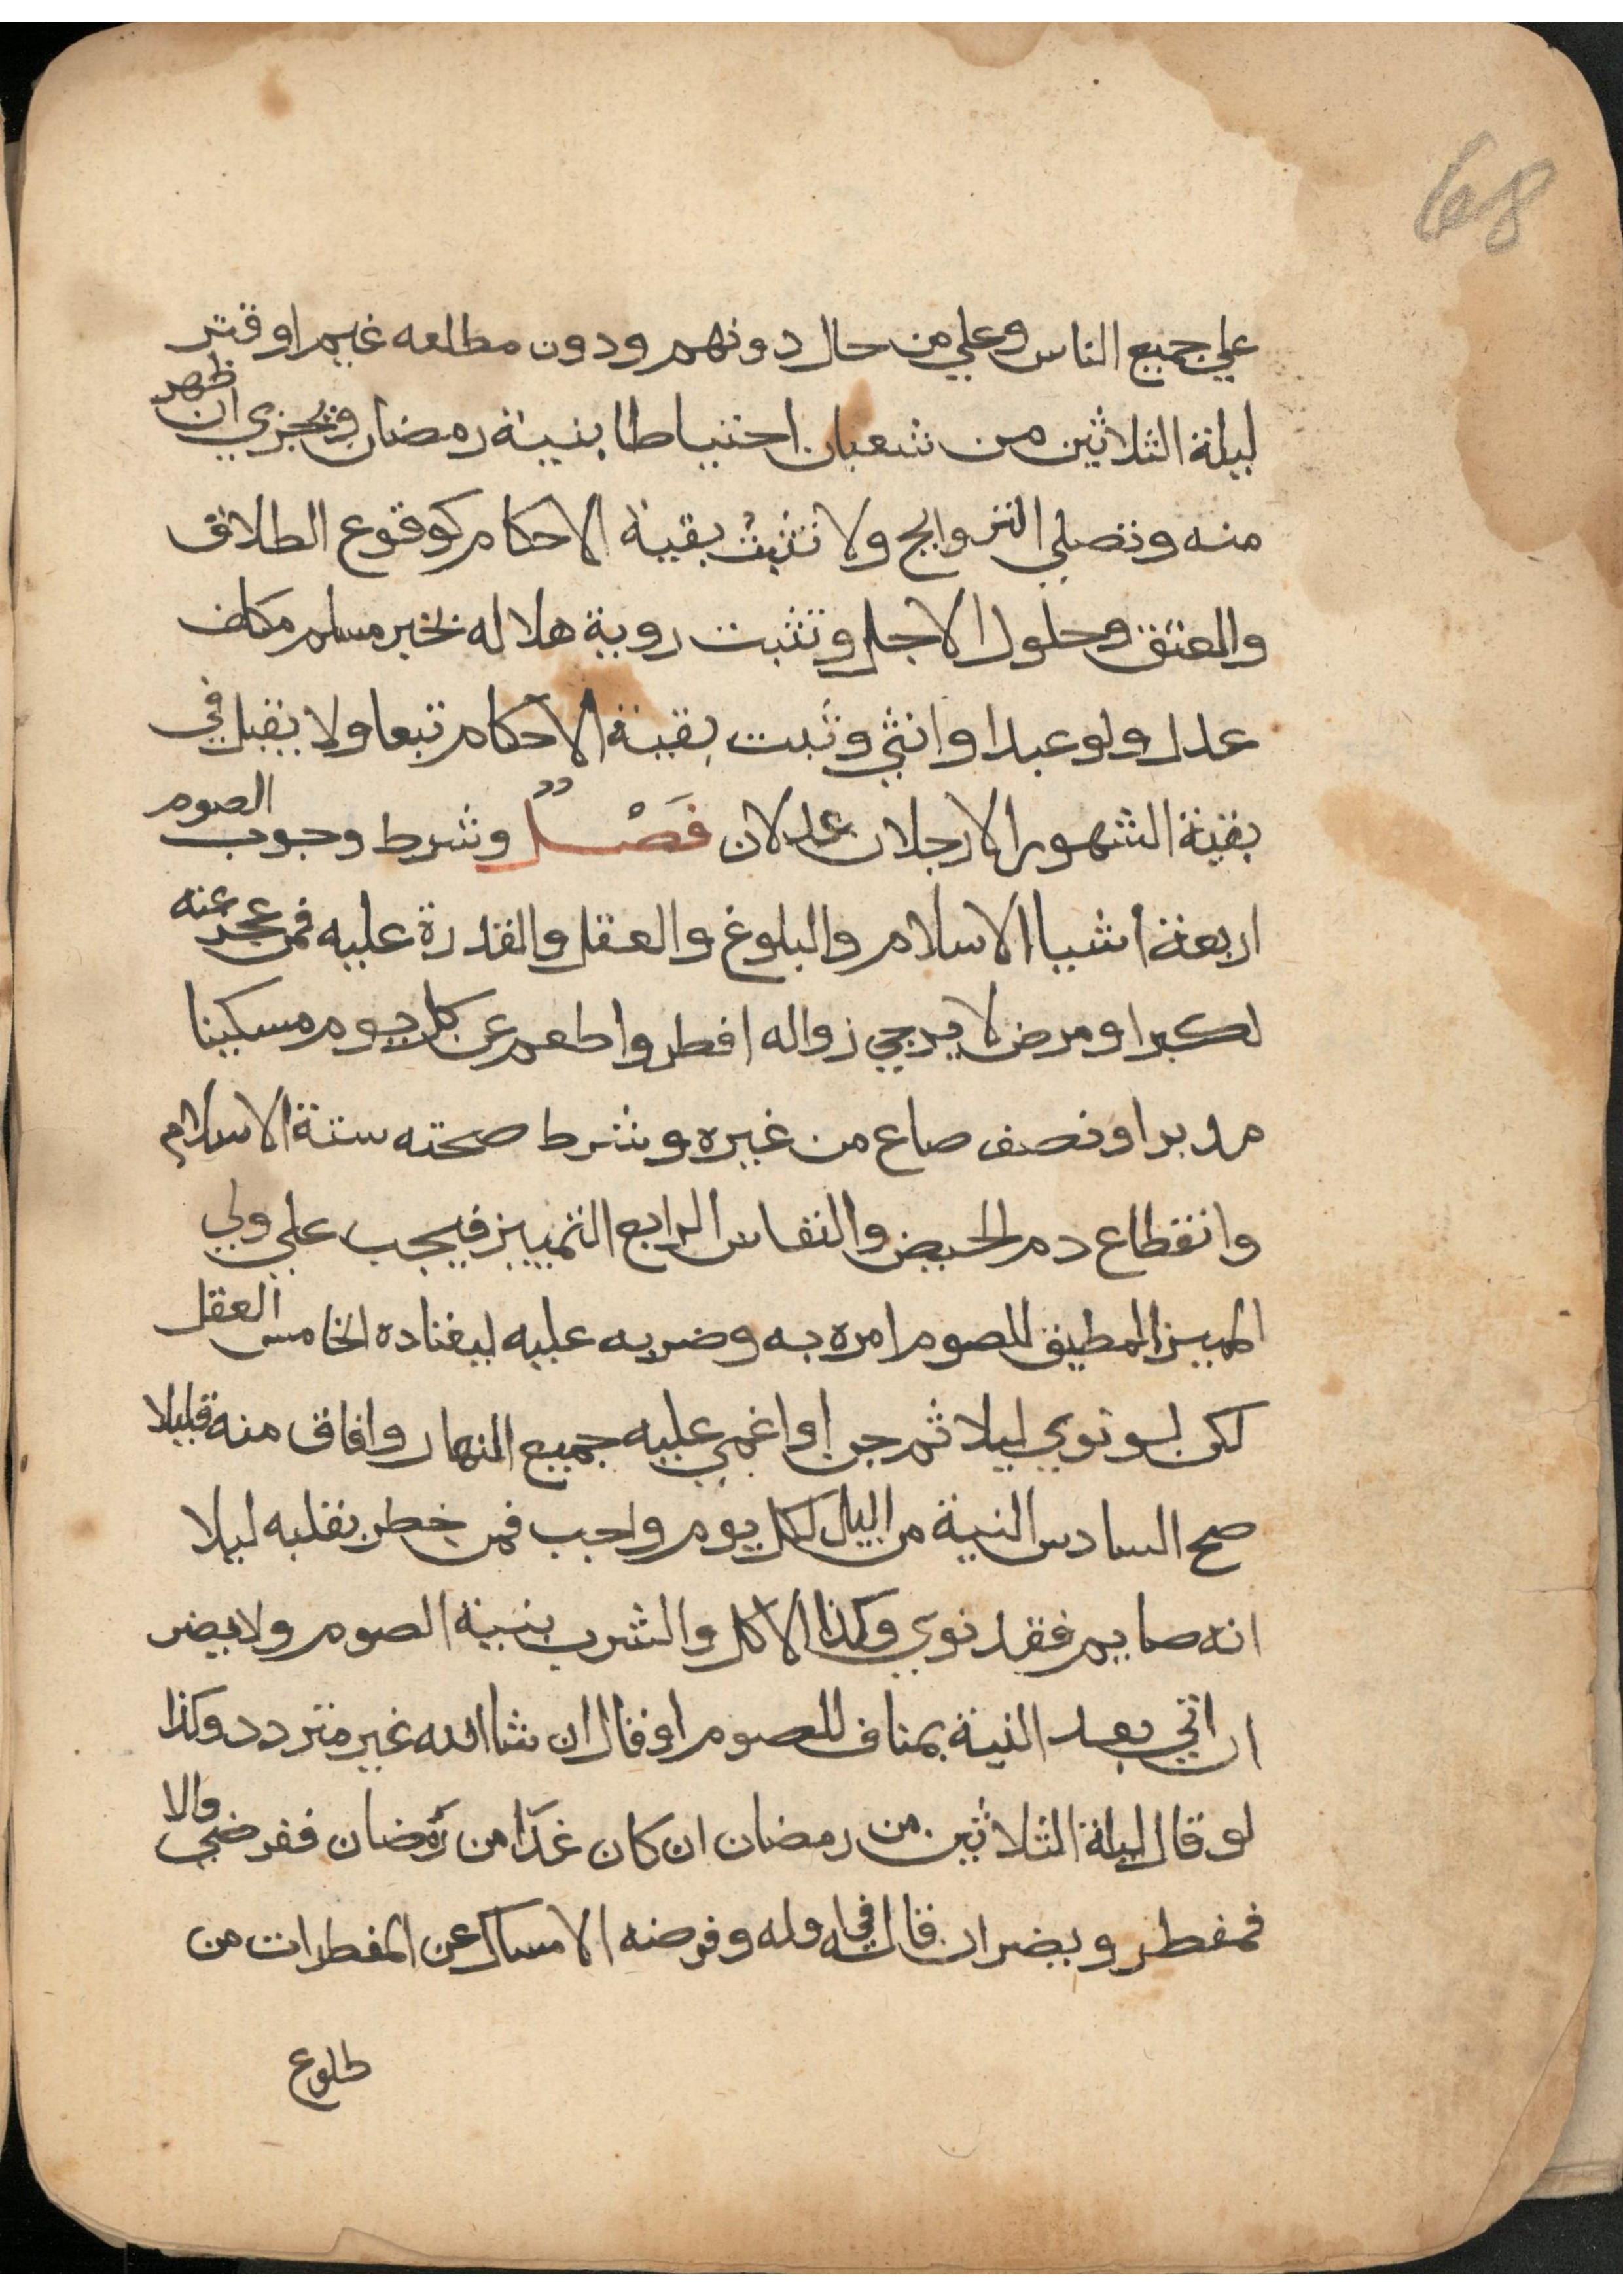 68
علي جميع الناس وعلي من حال دونهم ودون مطلعه غيم او قتر
ليلة الثلاثين من شعبان احتياطا بنية رمضان ويجزي ان ظهر
منه وتصلي التروايح ولا تثبت بقية الاحكام كوقوع الطلاق
والعتق وحلول الاجل وتثبت روية هلاله بخبر مسلم مكلف
عدل ولو عبدا او انثي وثبت بقية الاحكام تبعا ولا يقبل في
بقية الشهور الا رجلان عدلان فَصْلٌ وشرط وجوب الصوم
اربعة اشيا الاسلام والبلوغ والعقل والقدرة عليه فمن عجز عنه
لكبر او مرض لا يرجي زواله افطر واطعم عن كل يوم مسكينا
مد بر او نصف صاع من غيره وشرط صحته ستة الاسلام
وانقطاع دم الحيض والنفاس الرابع التمييز فيجب علي ولي
المميز المطيق للصوم امره به وضربه عليه ليعتاده الخامس العقل
لكن لو نوي ليلا ثم جن او اغمي عليه جميع النهار وافاق منه قليلا
صح السادس النية من اليل لكل يوم واجب فمن خطر بقلبه ليلا
انه صايم فقد نوي وكذا الاكل والشرب بنية الصوم ولا يضر
ان اتي بعد النية بمناف للصوم او قال ان شا الله غير متردد وكذا
لو قال ليلة الثلاثين من رمضان ان كان غدًا من رمضان ففرضي والا
فمفطر ويضر ان قاله في اوله وفرضه الامساك عن المفطرات من
طلوع